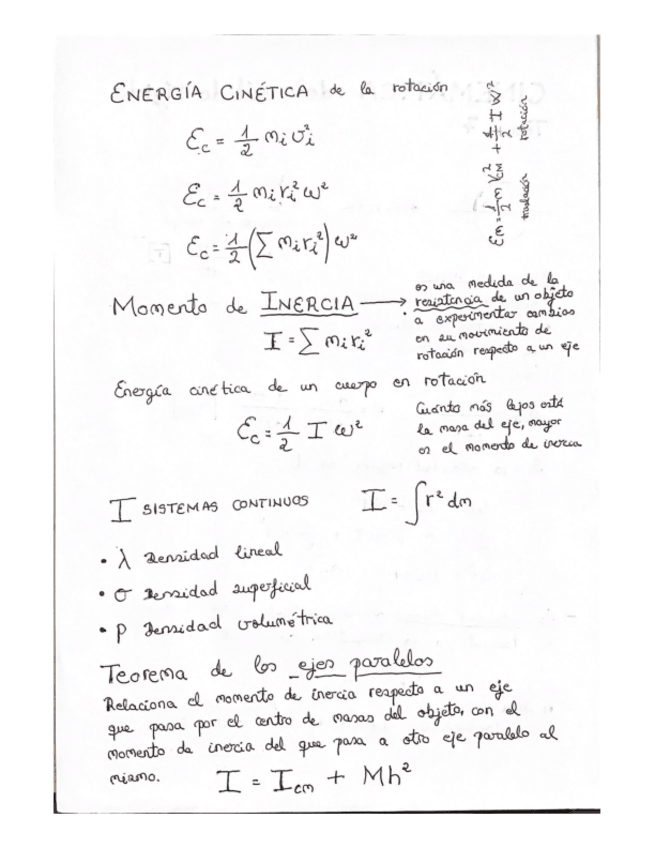 ENERGÍA CINÉTICA de la rotación
Ec = 1/2 mi vi²
Ec = 1/2 mi ri² ω²
Ec = 1/2 (∑ mi ri²) ω²
Em = 1/2 m V²CM + 1/2 I ω²
traslación rotación
Momento de INERCIA ⟶
I = ∑ mi ri²
es una medida de la
resistencia de un objeto
a experimentar cambios
en su movimiento de
rotación respecto a un eje
Energía cinética de un cuerpo en rotación
Ec = 1/2 I ω²
Cuánto más lejos está
la masa del eje, mayor
es el momento de inercia
I SISTEMAS CONTINUOS I = ∫ r² dm
• λ Densidad lineal
• σ Densidad superficial
• ρ Densidad volumétrica
Teorema de los ejes paralelos
Relaciona el momento de inercia respecto a un eje
que pasa por el centro de masas del objeto, con el
momento de inercia del que pasa a otro eje paralelo al
mismo.
I = Icm + Mh²